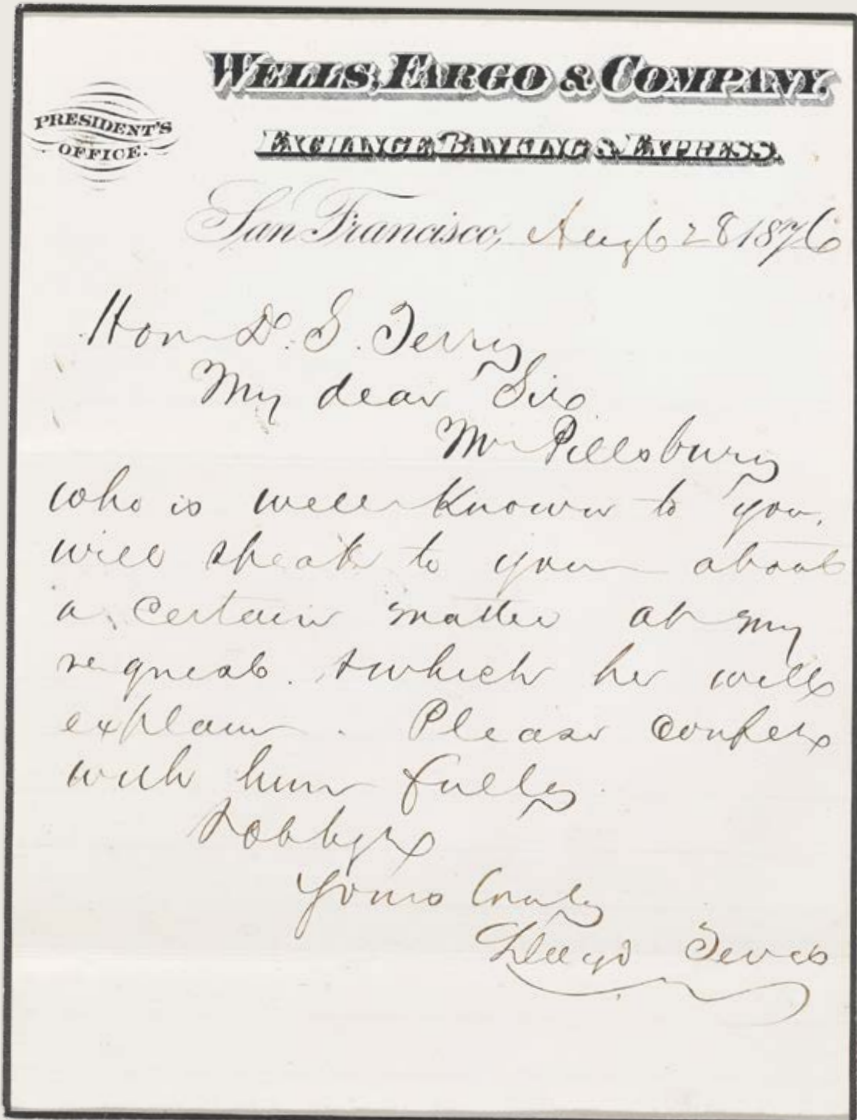 WELLS, FARGO & COMPANY.
PRESIDENT'S
OFFICE.
EXCHANGE BANKING & EXPRESS.
San Francisco, Augt 28 1876
Hon D. S. Terry
My dear Sir
Mr Pillsbury
who is well known to you,
will speak to you about
a certain matter at my
request. & which he will
explain. Please confer
with him fully
& oblige
Yours truly
Lloyd Tevis